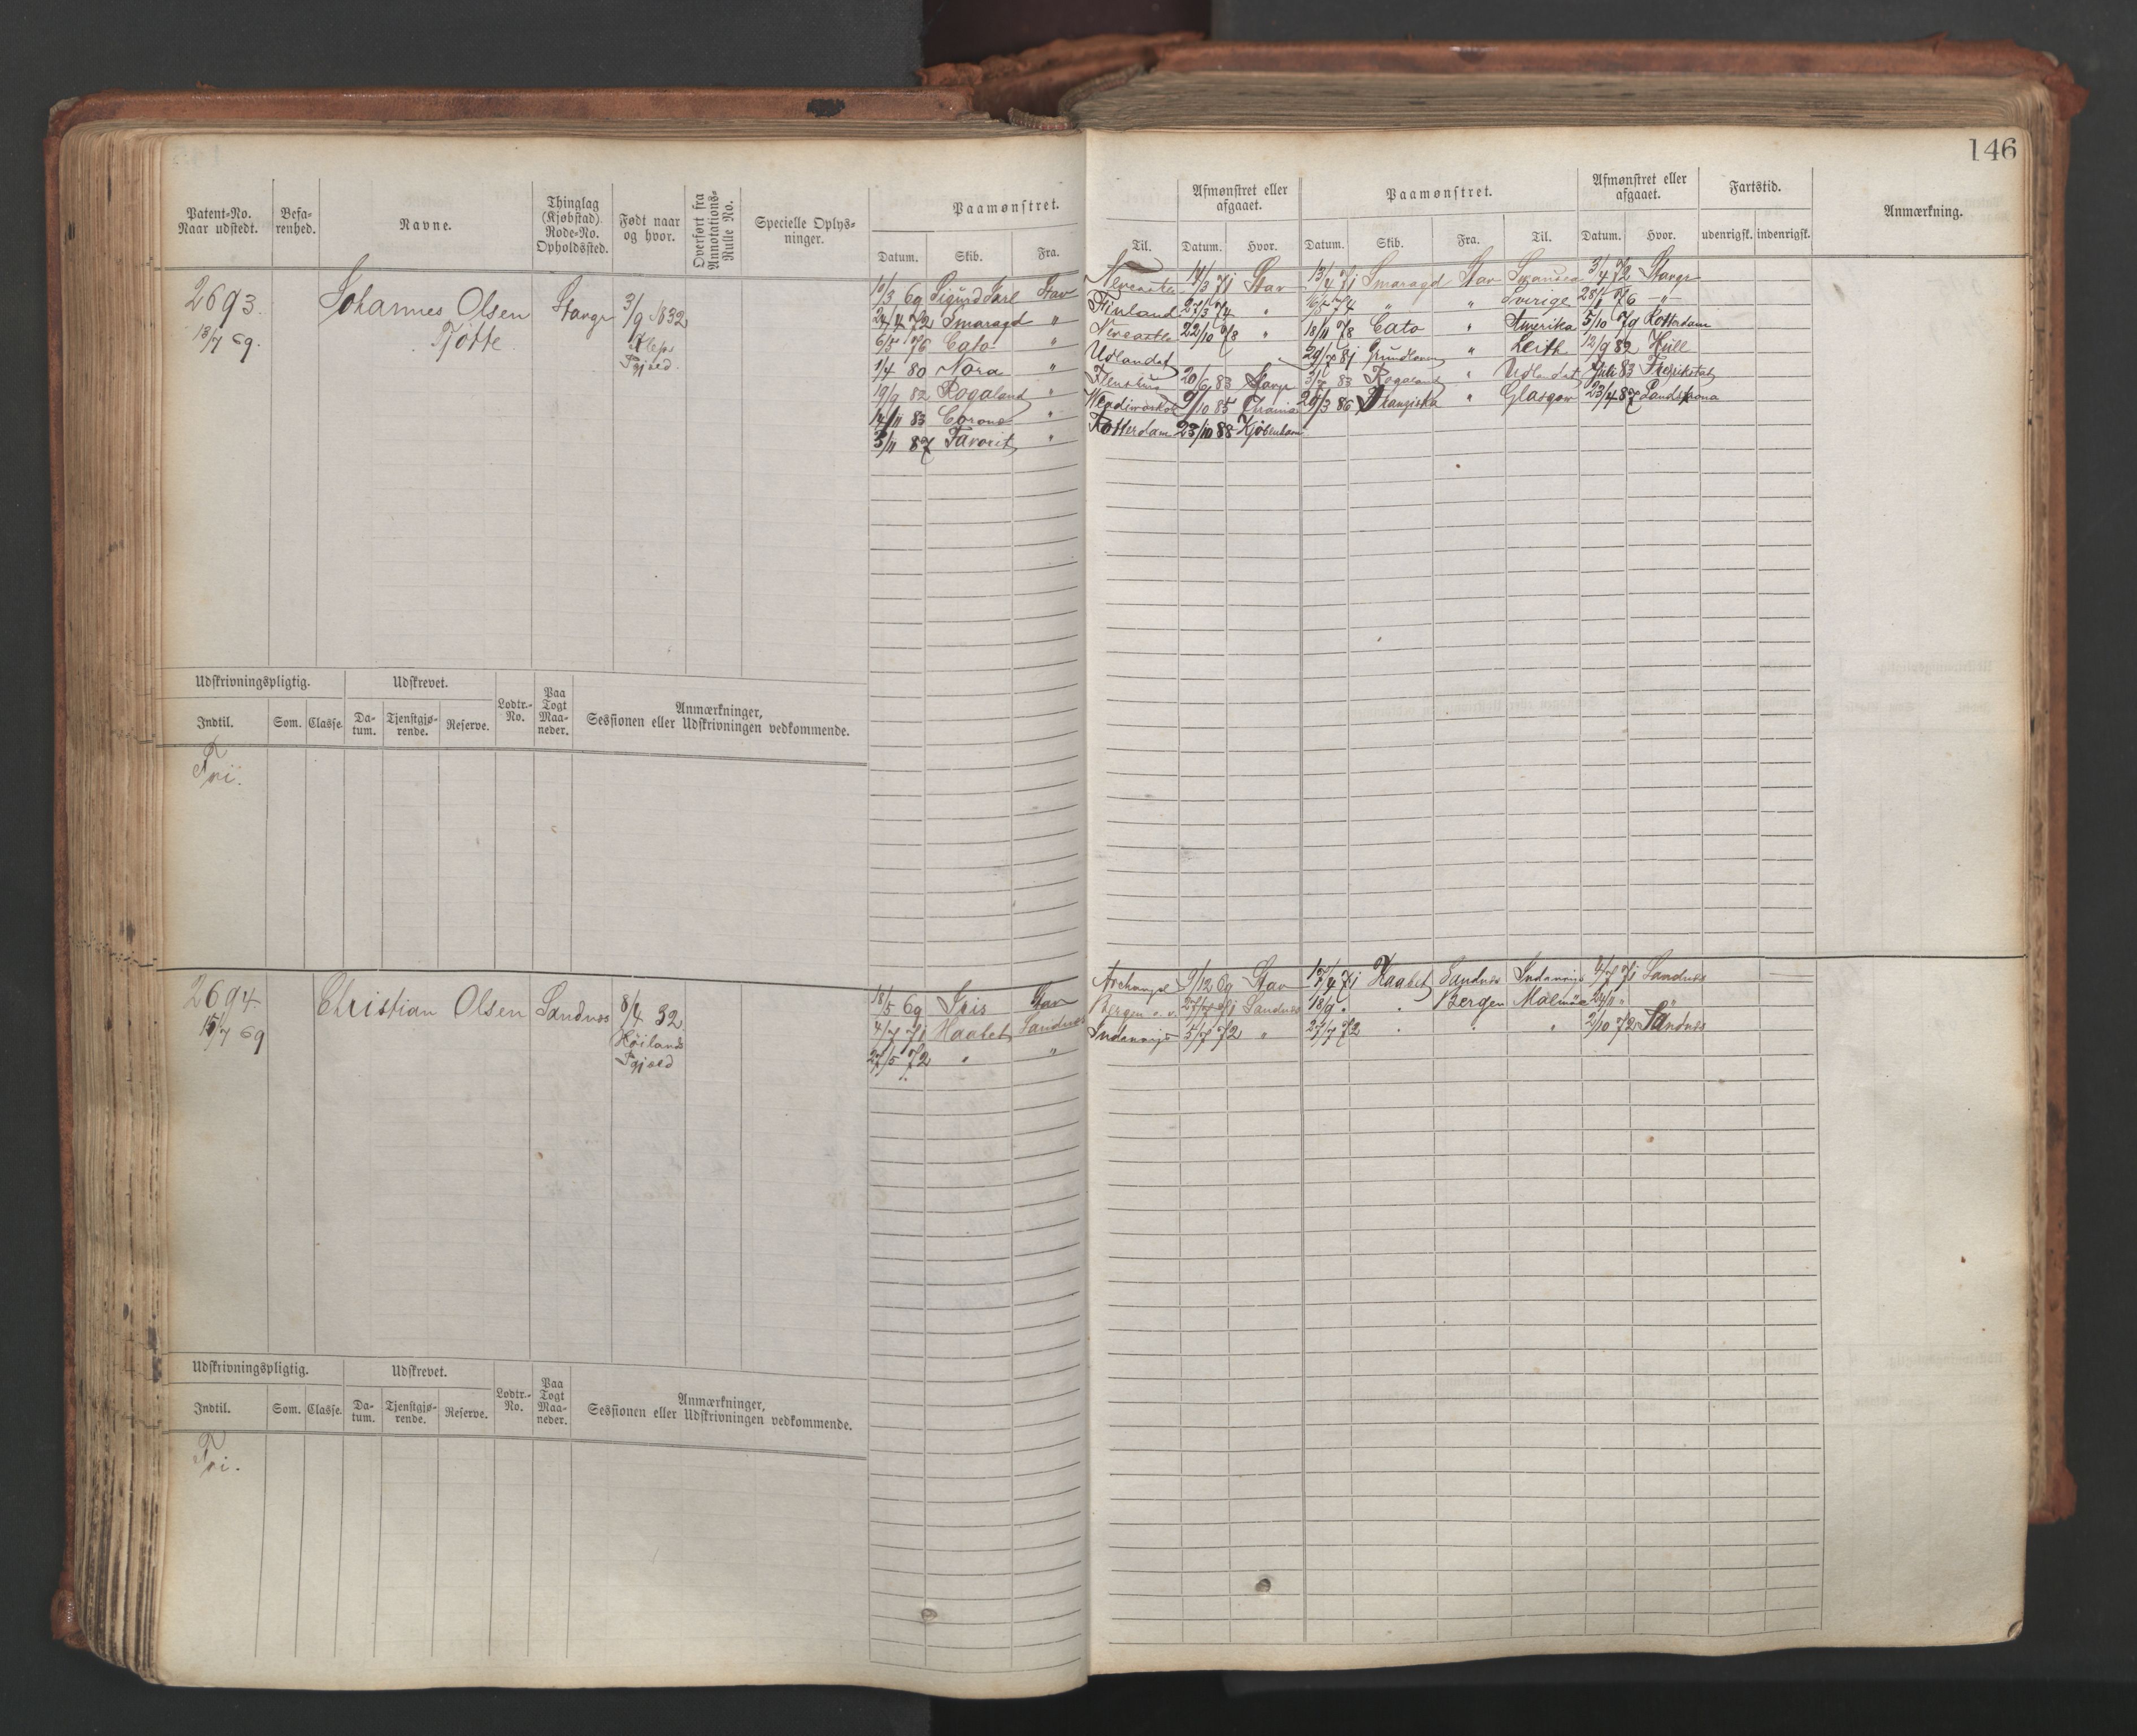 146
Patent-No. Naar udstedt.
Befa-
renhed.
Navne.
Thinglag
(Kjøbstad).
Rode-No.
Opholdssted.
Født naar
og hvor.
Overført fra
Annotations-
Rulle No.
Specielle Oplys-
ninger.
Paamønstret.
Datum. Skib. Fra.
Til.
Afmønstret eller
afgaaet.
Datum. Hvor.
Paamønstret.
Datum. Skib. Fra. Til.
Afmønstret eller
afgaaet.
Datum. Hvor.
Fartstid.
udenrigsk. indenrigsk.
Anmærkning.
2693.
13/7 69.
Johannes Olsen
Tjøtte
Stavgr
3/9 1832
Kleps
Pgjæld.
10/3 69 Sigurd Jarl Stav Newcastle 14/3 71 Stav 13/4 71 Smaragd Stav 3/4 72 Stavgr
24/4 72 Smaragd " Finland 27/3 74 " 16/5 74 " " Sverige 28/4 76 -"-
6/5 76 Cato " Newcastle 22/10 78 " 18/11 78 Cato " Amerika 5/10 79 Rotterdam
1/4 80 Nora " Udlandet 29/7 81 " Leith 12/9 82 Hull
19/9 82 Rogaland " Flensburg 20/6 83 Stavgr 3/7 83 Rogaland " Udlandet Juli 83 Fredrikstad
14/11 83 Corona " 9/10 85 29/3 86 Franziska " Glasgow 23/4 87 Landskrona
3/11 87 Favorit " Rotterdam 23/10 88 Kjøbenhavn
Udskrivningspligtig.
Udskrevet.
Lodtr.-
No.
Paa
Togt
Maa-
neder.
Anmærkninger,
Sessionen eller Udskrivningen vedkommende.
Indtil. Som. Classe. Da-
tum. Tjenstgjø-
rende. Reserve.
Fri.
2694.
15/7 69
Christian Olsen
Sandnes
8/4 32
Höilands
Pgjæld
18/5 69 Iris Stav Archangel 9/12 69 Stav 17/4 71 Haabet Sandnes Indenrigs 4/7 71 Sandnes
4/7 71 Haabet Sandnes Bergen o. v. 27/7 71 Sandnes 18/9 " " Bergen Malmöe 24/11 " "
27/5 72 " " Indenrigs 5/7 72 " 27/7 72 " " " 2/10 72 Sandnes
Udskrivningspligtig.
Udskrevet.
Lodtr.-
No.
Paa
Togt
Maa-
neder.
Anmærkninger,
Sessionen eller Udskrivningen vedkommende.
Indtil. Som. Classe. Da-
tum. Tjenstgjø-
rende. Reserve.
Fri.